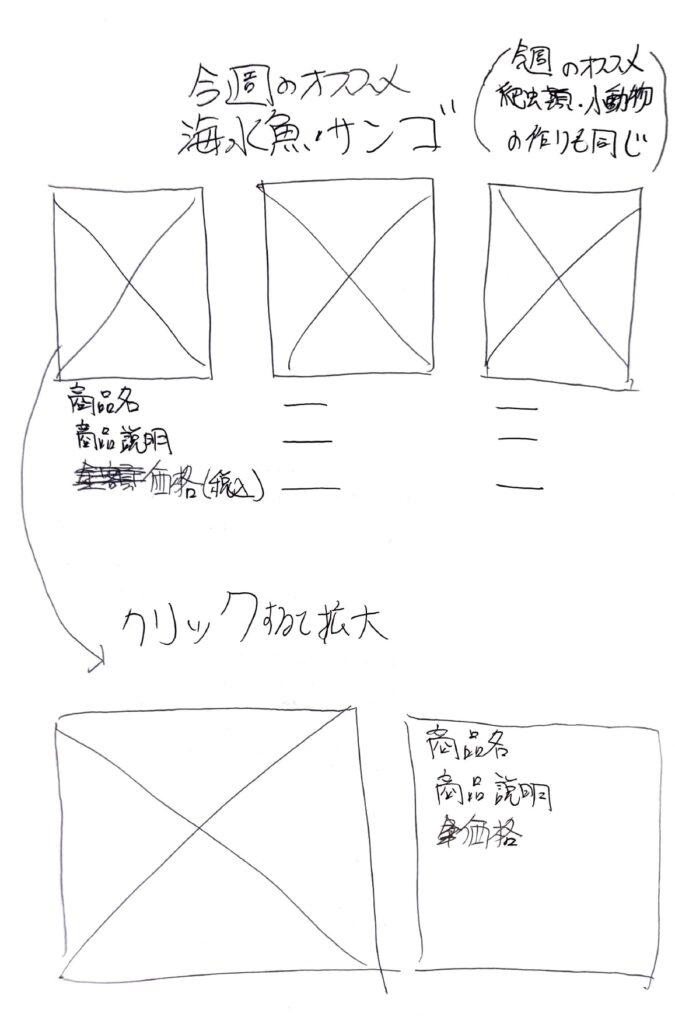 今週のオススメ
海水魚・サンゴ
(今週のオススメ
爬虫類・小動物
の作りも同じ)
商品名
商品説明
価格(税込)
クリックすると拡大
商品名
商品説明
価格